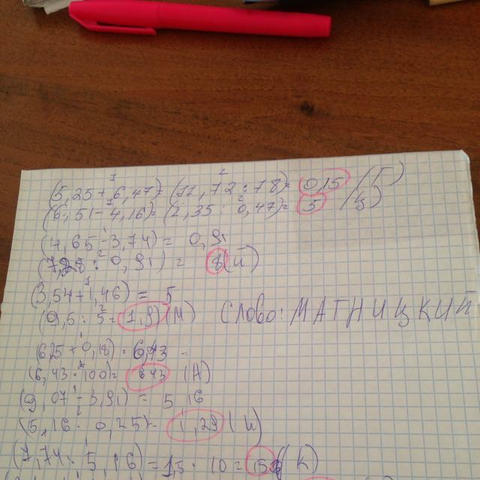 (5,25 + 6,47) = (11,72 : 78) = 0,15 (Г)
(6,51 - 4,16) = (2,35 : 0,47) = 5 (Ц)
(4,65 - 3,74) = 0,91
(7,28 : 0,91) = 8 (И)
(3,54 + 1,46) = 5
(9,5 : 5 = 1,9) (М) Слово: МАГНИЦКИЙ
(6,25 + 0,18) = 6,43
(6,43 · 100) = 643 (А)
(9,07 - 3,91) = 5,16
(5,16 · 0,25) = 1,29 (И)
(7,74 : 5,16) = 1,5 · 10 = 15 (К)